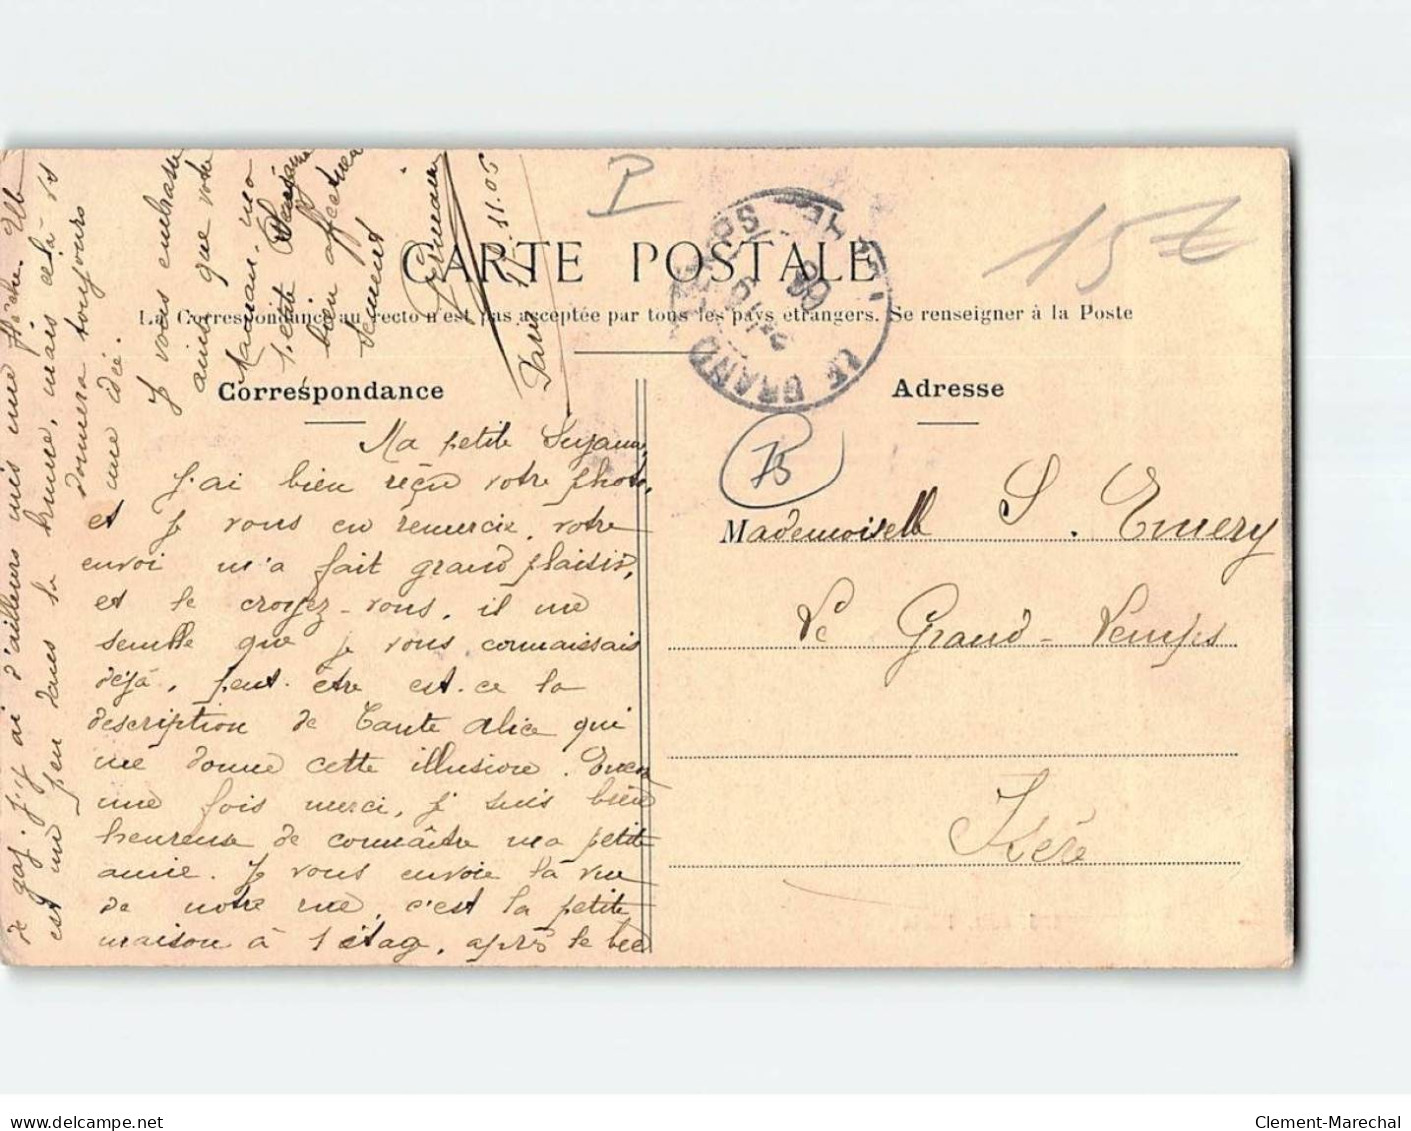 P
15€
CARTE POSTALE
La Correspondance au recto n'est pas acceptée par tous les pays étrangers. Se renseigner à la Poste
LE GRAND
Correspondance
Adresse
75
Ma petite Suzanne,
J'ai bien reçu votre photo,
et je vous en remercie, votre
envoi m'a fait grand plaisir,
et le croyez-vous, il me
semble que je vous connaissais
déjà, peut-être est-ce la
description de Tante Alice qui
me donne cette illusion. Encore
une fois merci, je suis bien
heureuse de connaître ma petite
amie. Je vous envoie la vue
de notre rue, c'est la petite
maison à 1 étag, après le bec
de gaz. j'y ai d'ailleurs mis une flèche. Elle
est un peu dans la brume, mais cela vs
donnera toujours
une idée.
Je vous embrasse
ainsi que votre
Maman, ma
petite Suzanne
bien affectueu
sement
Germaine
Paris 11.05
Mademoiselle S. Emery
Le Grand-Lemps
Isère
delcampe.net
Clement-Marechal